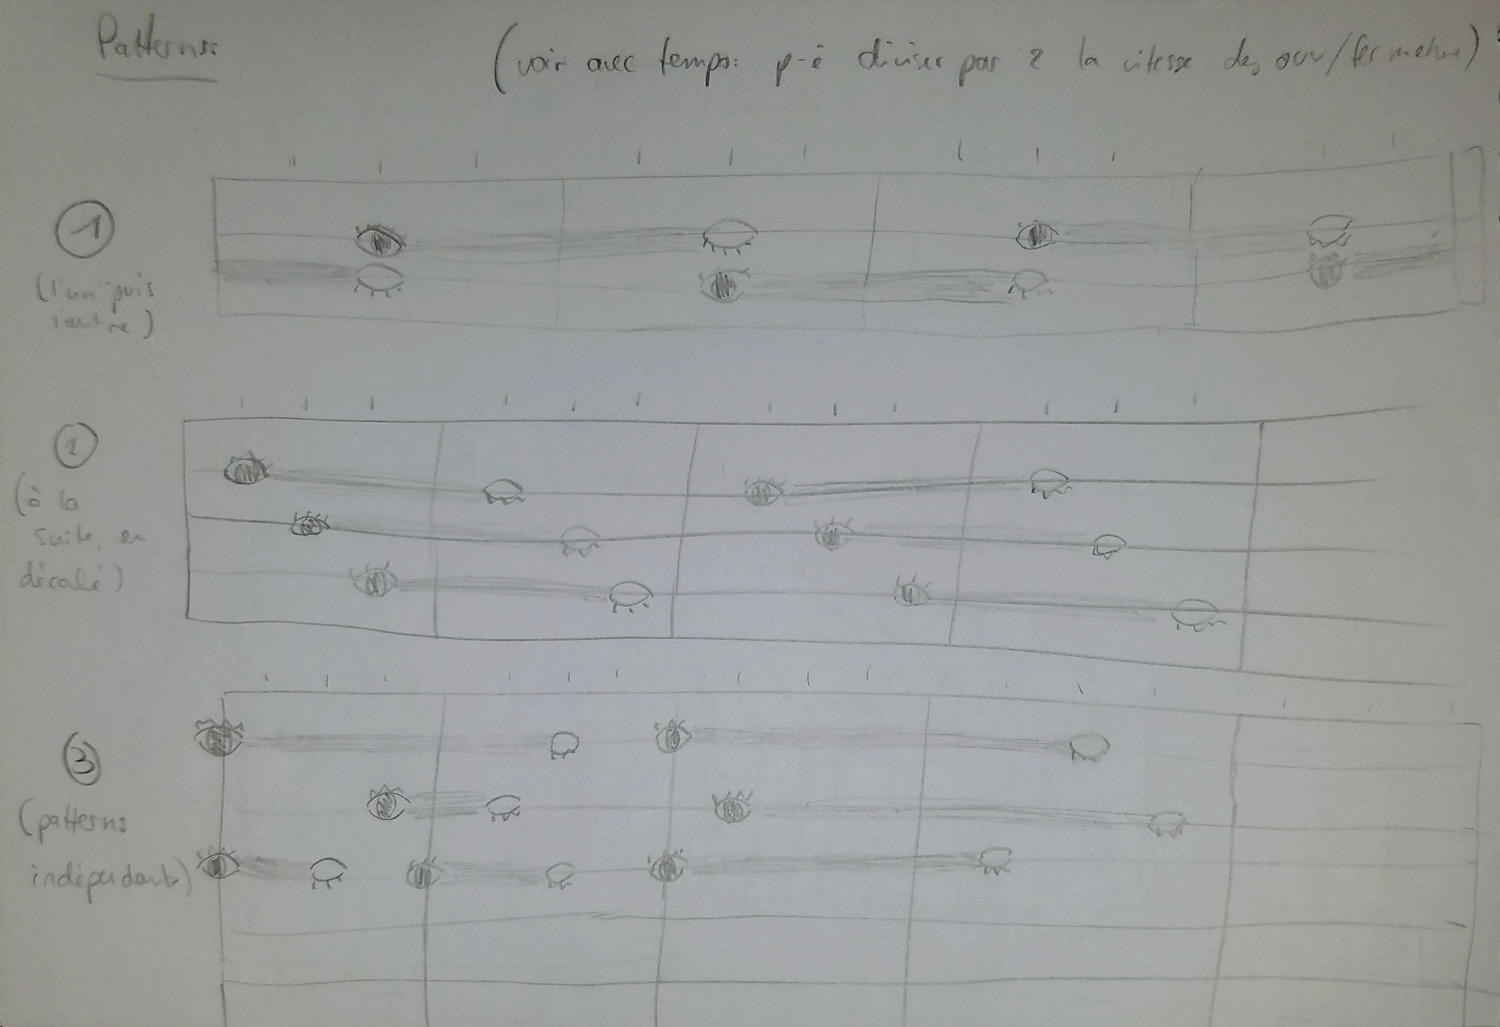 Patterns
(voir avec tempo: p-ê diviser par 2 la vitesse des ouv/fermeture)
1
(l'un puis
l'autre)
2
(à la
suite, en
décalé)
3
(patterns
indépendants)